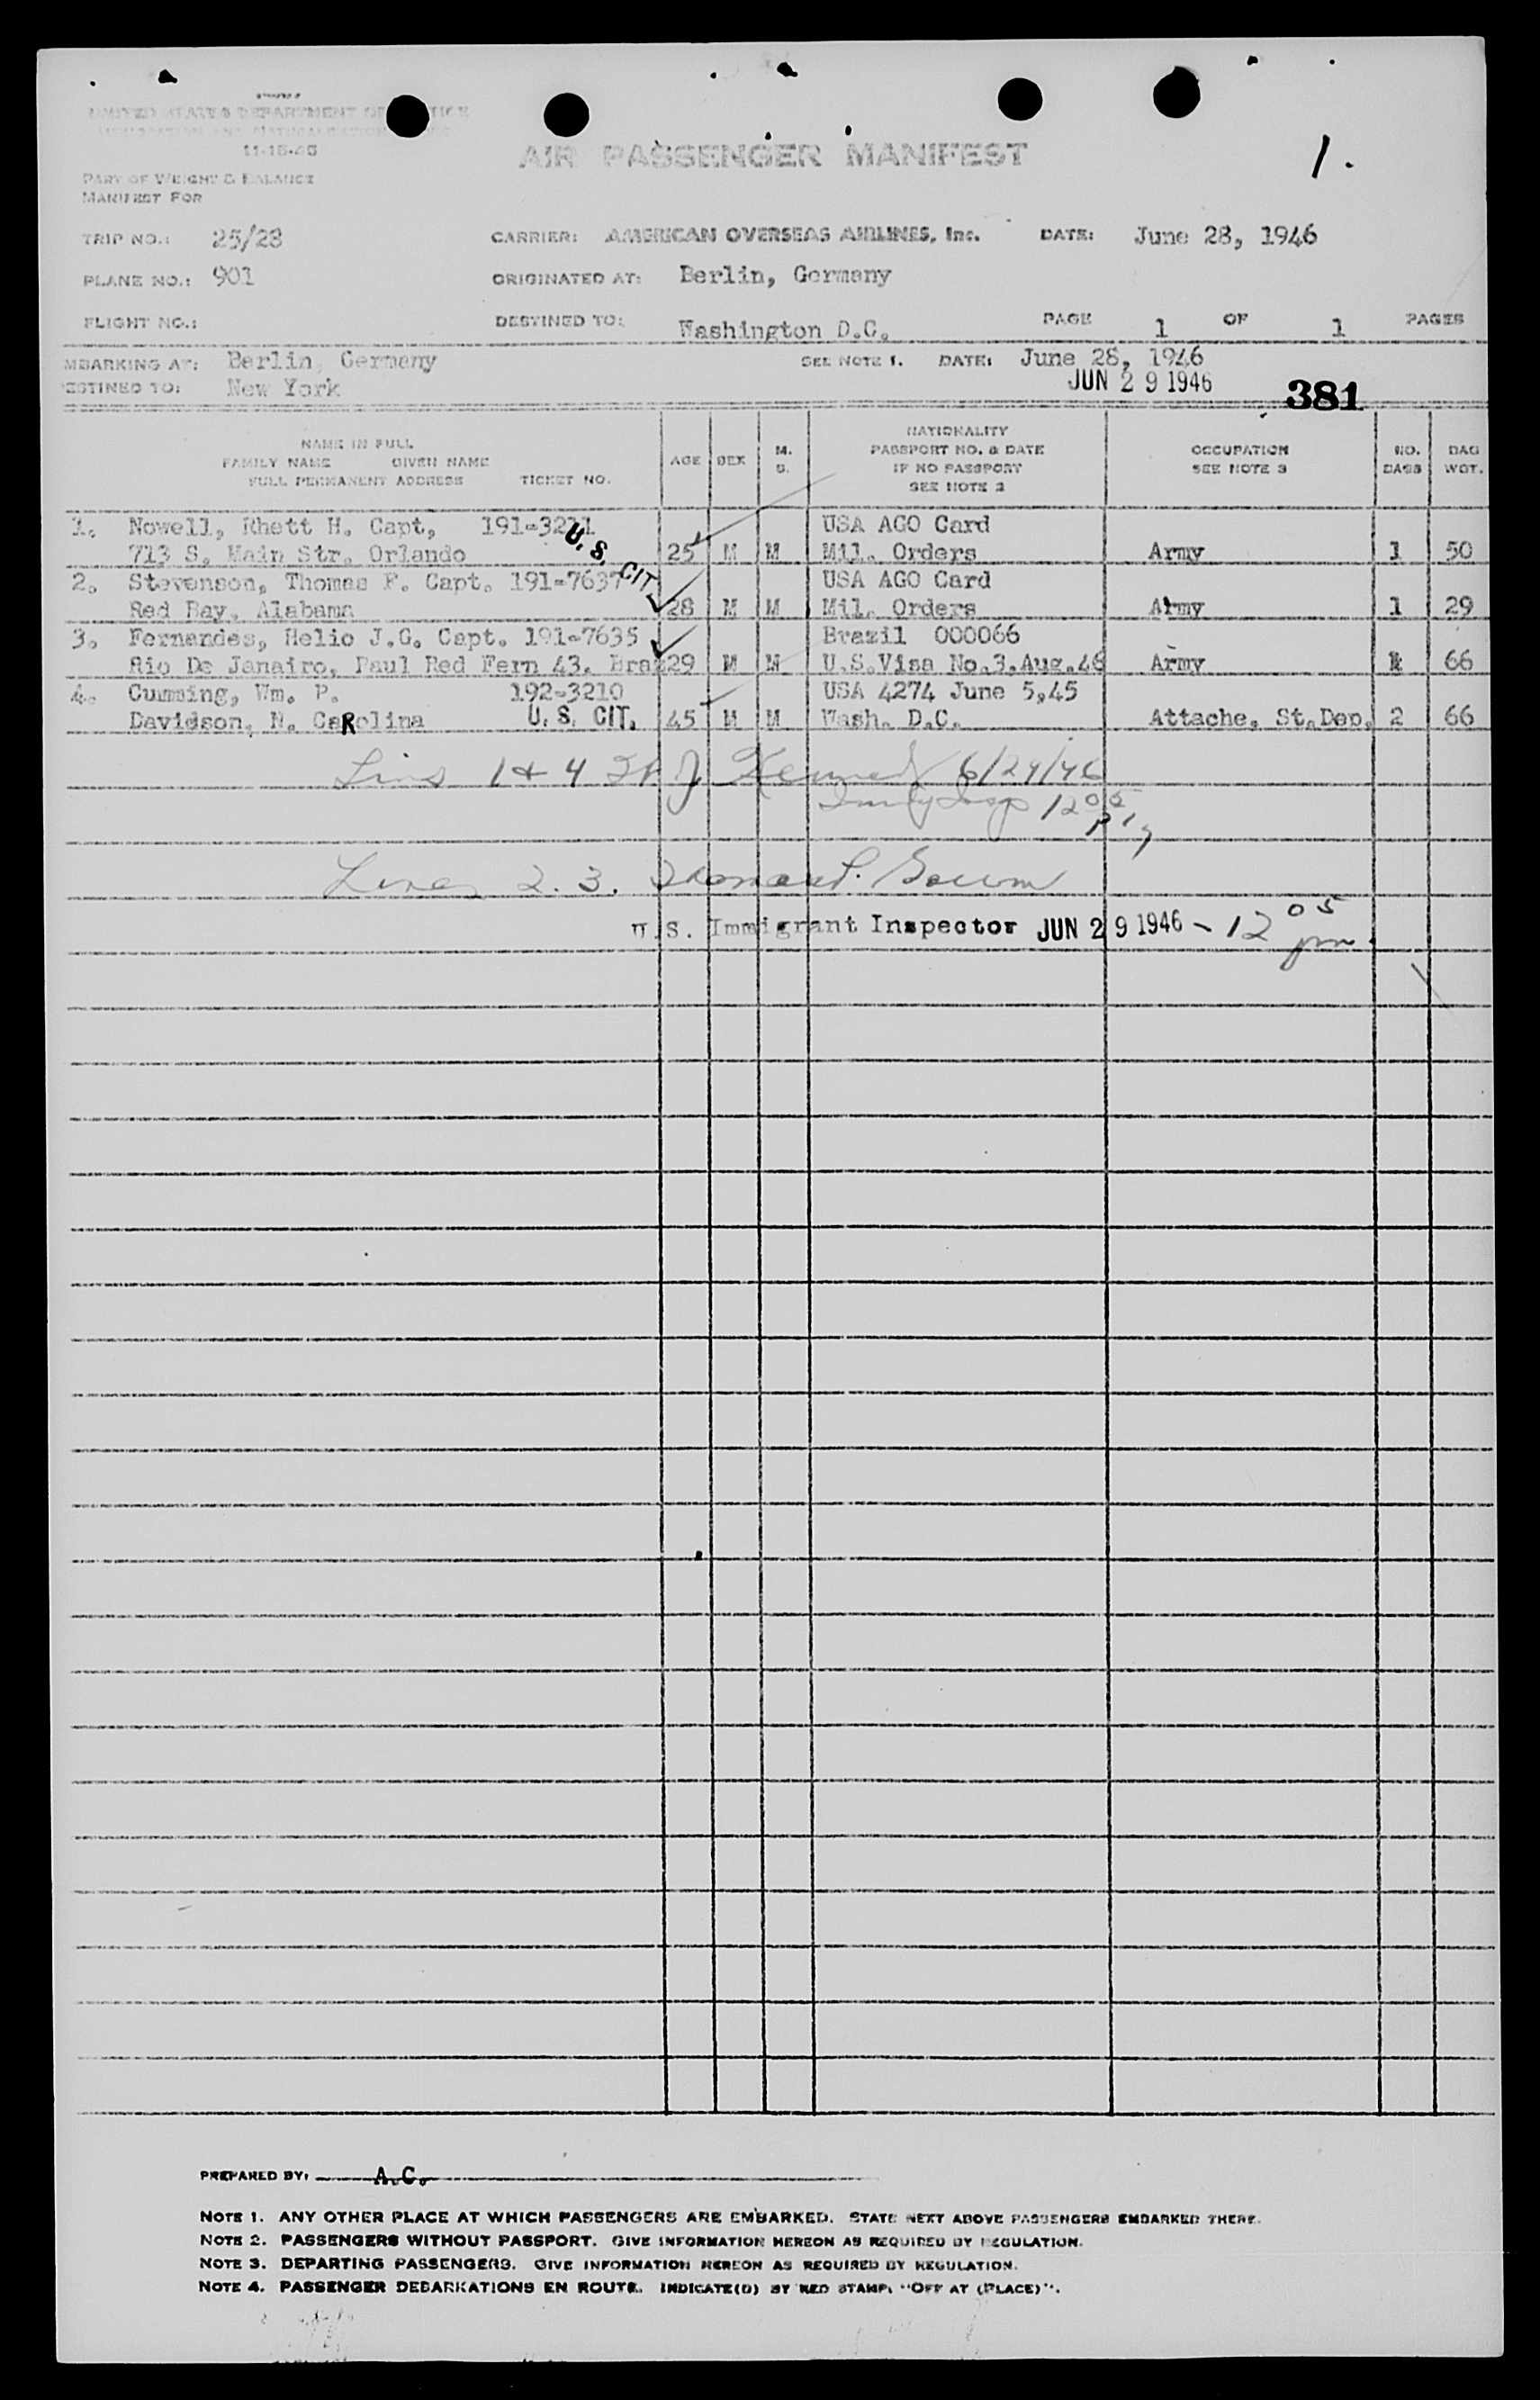 UNITED STATES DEPARTMENT OF
11-18-46
AIR PASSENGER MANIFEST
1.
PART OF WEIGHT & BALANCE
MANIFEST FOR
TRIP NO.: 25/28 CARRIER: AMERICAN OVERSEAS AIRLINES, Inc. DATE: June 28, 1946
PLANE NO.: 901 ORIGINATED AT: Berlin, Germany
FLIGHT NO.: DESTINED TO: Washington D.C. PAGE 1 OF 1 PAGES
MBARKING AT: Berlin, Germany SEE NOTE 1. DATE: June 28, 1946
ESTINED TO: New York JUN 29 1946 381
NAME IN FULL
FAMILY NAME GIVEN NAME
FULL PERMANENT ADDRESS TICKET NO. AGE SEX M. S. NATIONALITY PASSPORT NO. & DATE IF NO PASSPORT SEE NOTE 2 OCCUPATION SEE NOTE 3 NO. BAGS BAG WGT.
1. Nowell, Rhett H. Capt, 191-3211 USA AGO Card
713 S. Main Str. Orlando 25 M M Mil. Orders Army 1 50
U. S. CIT.
2. Stevenson, Thomas F. Capt. 191-7637 USA AGO Card
Red Bay, Alabama 28 M M Mil. Orders Army 1 29
3. Fernandes, Helio J.G. Capt. 191-7635 Brazil 000066
Rio De Janairo, Paul Red Fern 43. Braz 29 M M U.S.Visa No.3.Aug.46 Army 1 66
4. Cumming, Wm. P. 192-3210 USA 4274 June 5,45
Davidson, N. CaRolina U. S. CIT. 45 M M Wash. D.C. Attache, St.Dep. 2 66
1 & 4 J Kennedy 6/29/46
12 05
Lines 2. 3.
U.S. Immigrant Inspector JUN 29 1946 - 12 05 pm.
PREPARED BY: A.C.
NOTE 1. ANY OTHER PLACE AT WHICH PASSENGERS ARE EMBARKED. STATE NEXT ABOVE PASSENGERS EMBARKED THERE.
NOTE 2. PASSENGERS WITHOUT PASSPORT. GIVE INFORMATION HEREON AS REQUIRED BY REGULATION.
NOTE 3. DEPARTING PASSENGERS. GIVE INFORMATION HEREON AS REQUIRED BY REGULATION.
NOTE 4. PASSENGER DEBARKATIONS EN ROUTE. INDICATE(D) BY RED STAMP, "OFF AT (PLACE)".